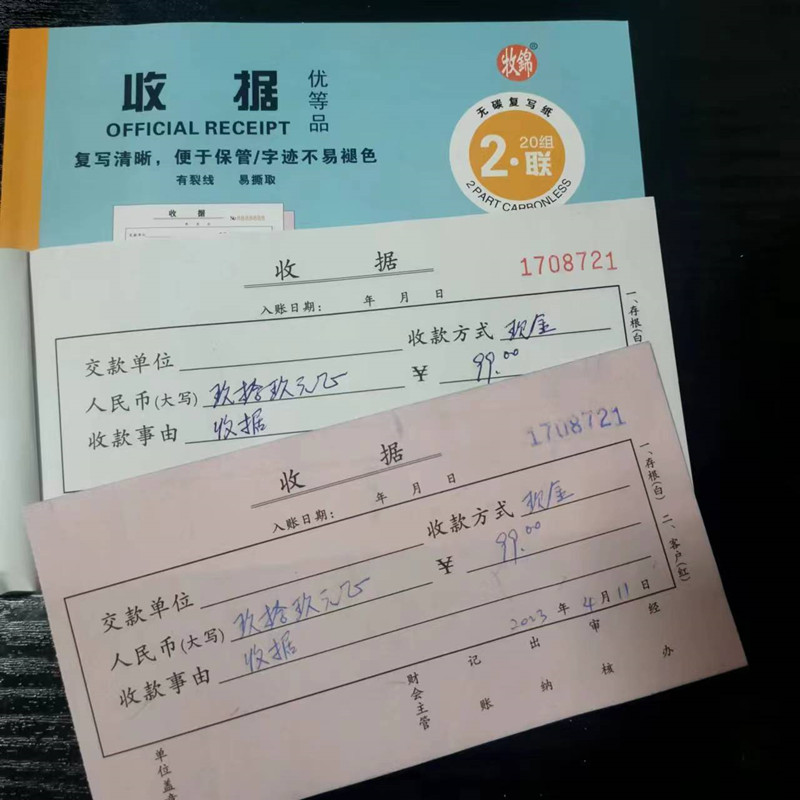 牧锦®
收据
优等品
OFFICIAL RECEIPT
复写清晰，便于保管/字迹不易褪色
有裂线 易撕取
无碳复写纸
20组
2·联
2 PART CARBONLESS
收据
收据
1708721
入账日期： 年 月 日
交款单位 收款方式 现金
人民币(大写) 玖拾玖元正 ¥ 99.00
收款事由 收据
一、存根(白
收据
1708721
入账日期： 年 月 日
交款单位 收款方式 现金
人民币(大写) 玖拾玖元正 ¥ 99.00
收款事由 收据
2023 年 4 月 11 日
一、存根(白) 二、客户(红)
单位盖章
财会主管 记账 出纳 审核 经办